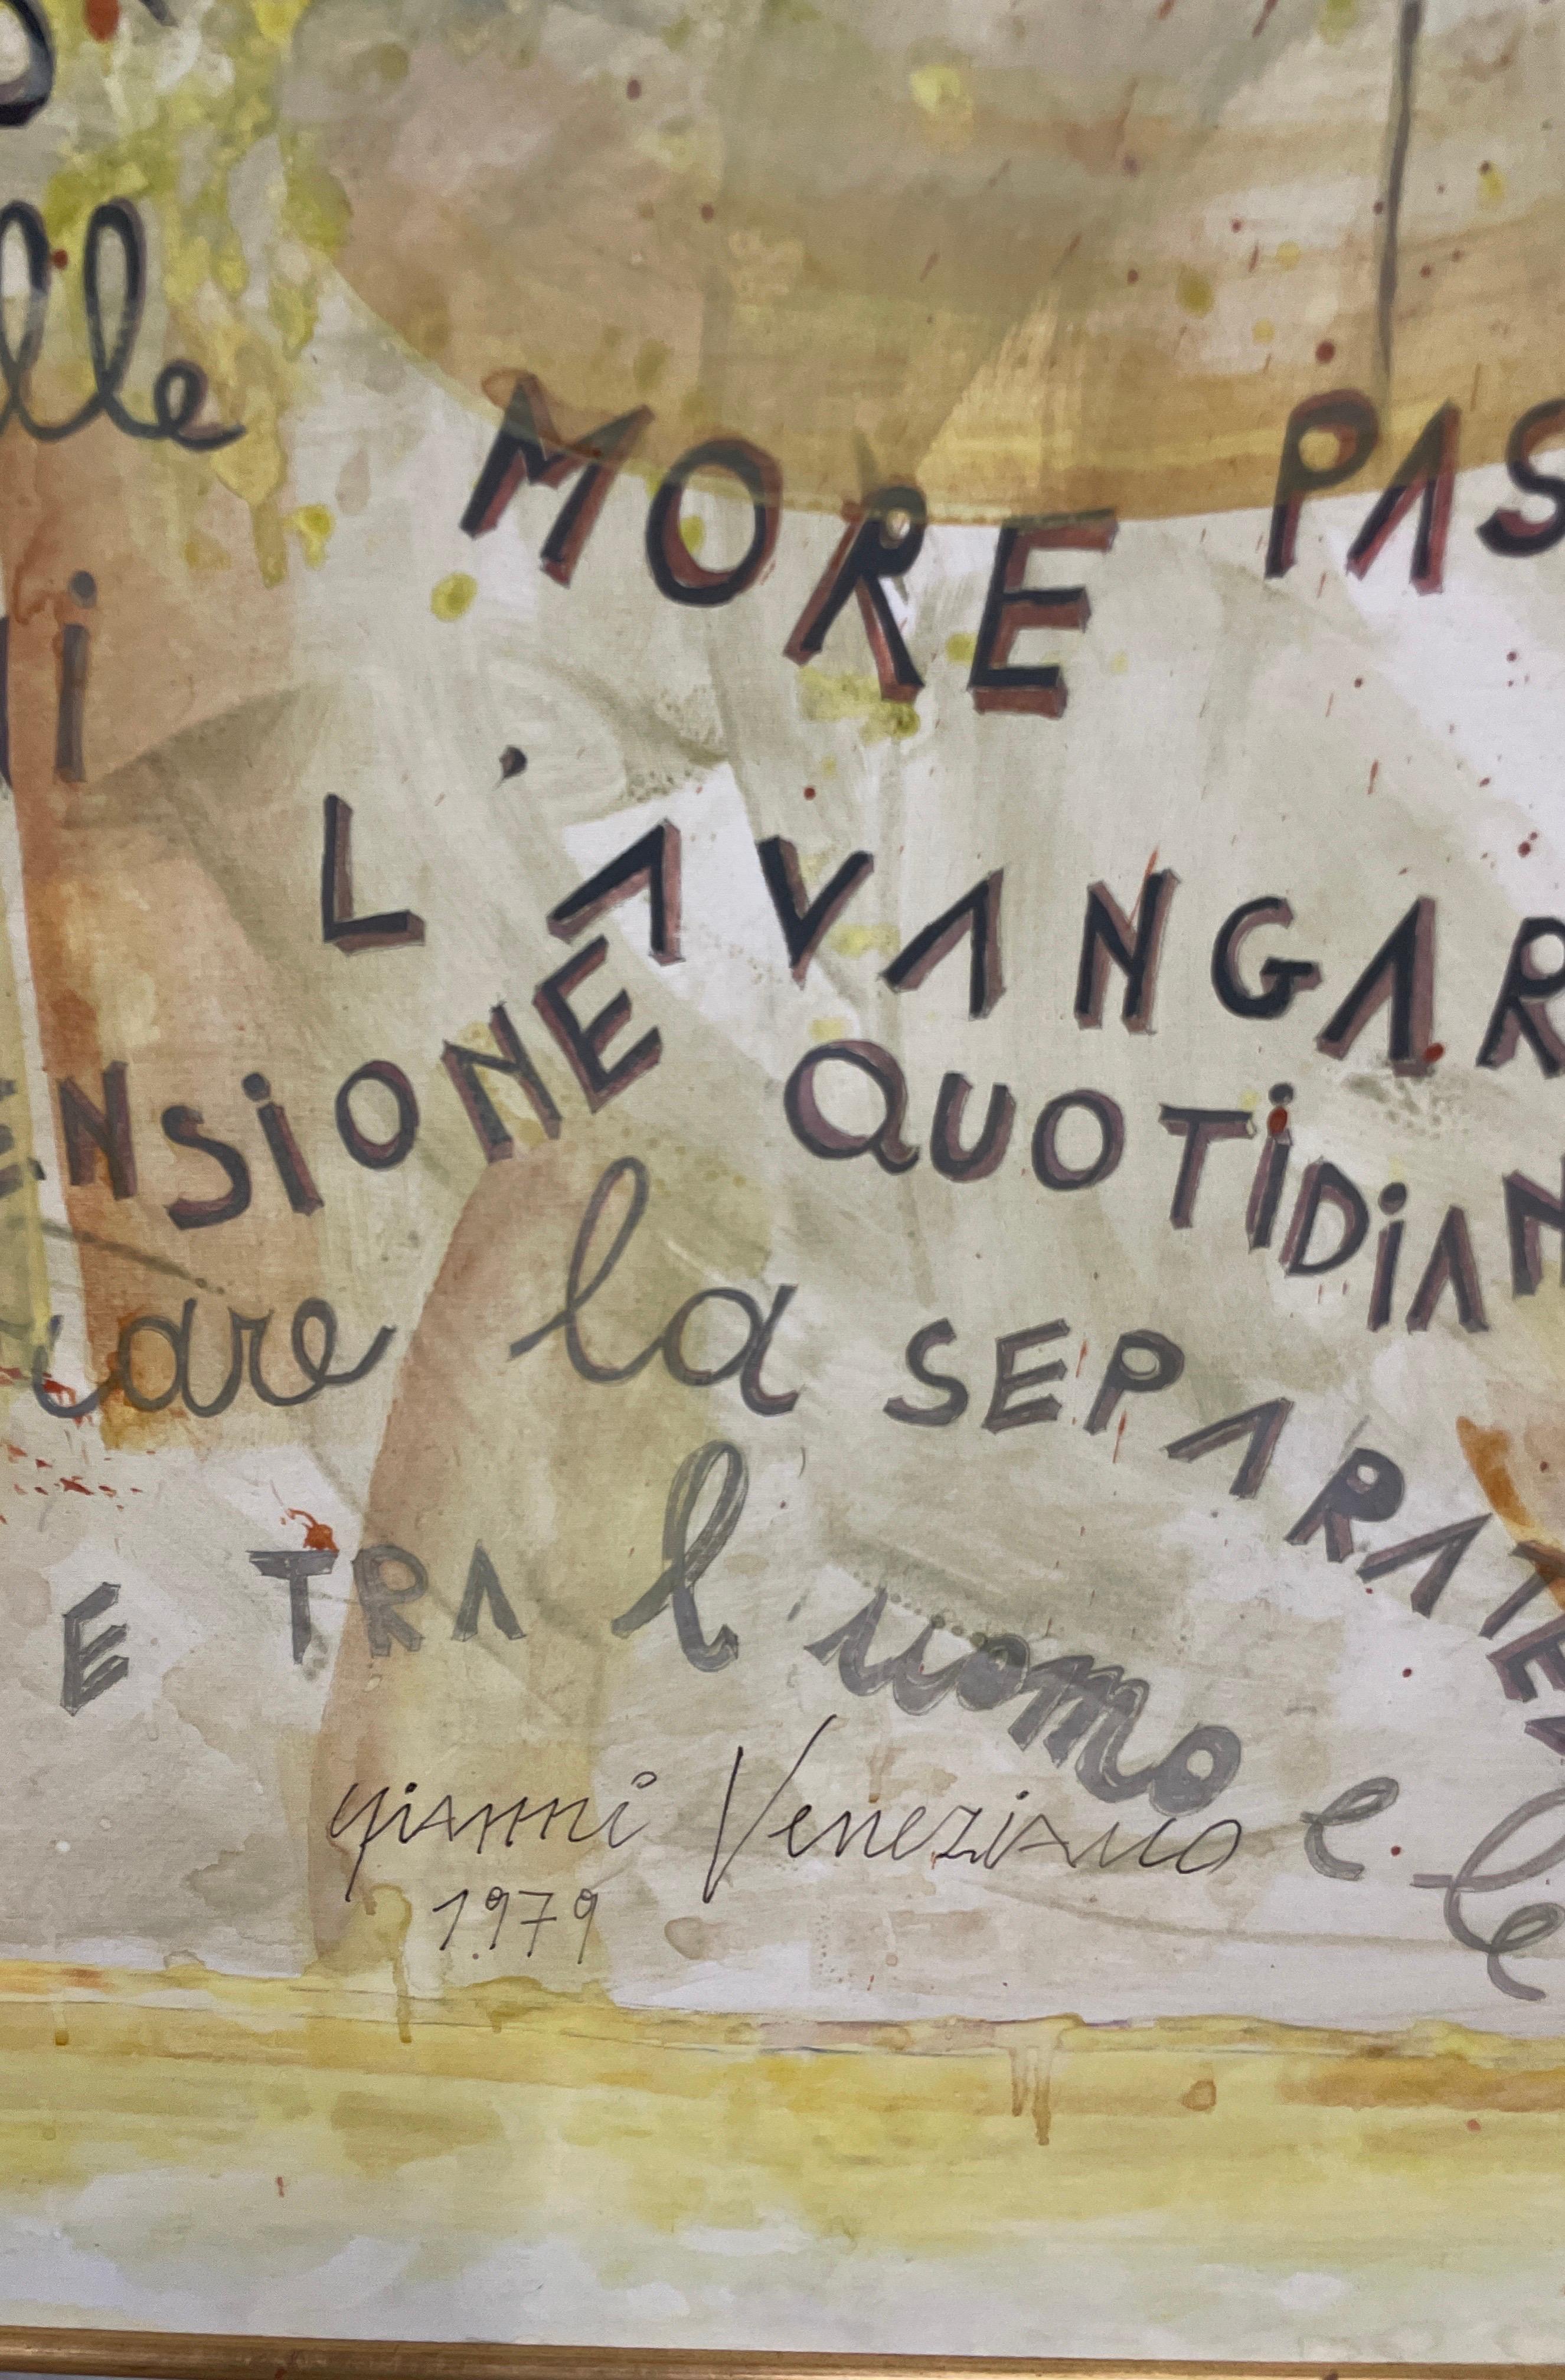 lle
MORE PAS
L'AVANGAR
ENSIONE QUOTIDIAN
care la SEPARATE
E TRA l'uomo e le
gianni Veneziano
1979